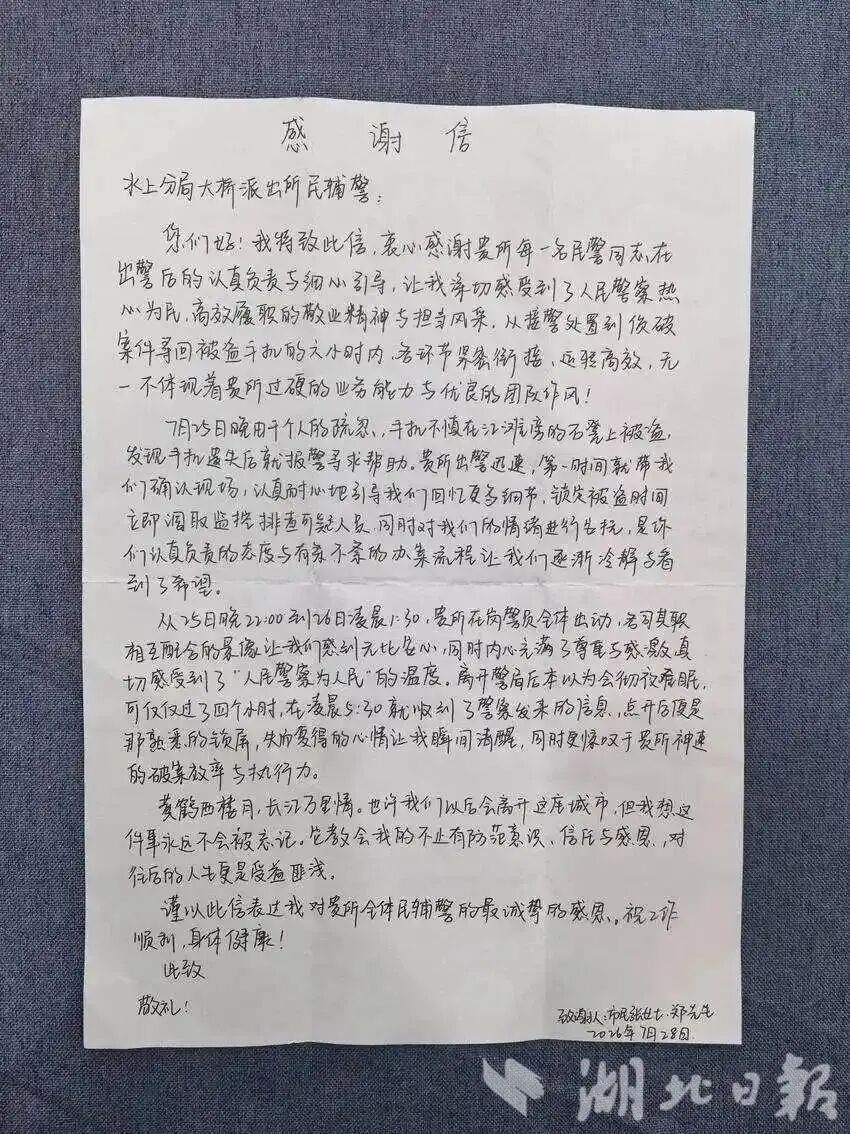 感谢信
水上分局大桥派出所民辅警：
您们好！我特致此信，衷心感谢贵所每一名民警同志在
出警后的认真负责与细心引导，让我深切感受到了人民警察热
心为民、高效履职的敬业精神与担当风采，从接警处置到侦破
案件寻回被盗手机的六小时内，各环节紧密衔接、运转高效，无
一不体现着贵所过硬的业务能力与优良的团队作风！
7月25日晚由于个人的疏忽，手机不慎在江滩旁的石凳上被盗，
发现手机遗失后就报警寻求帮助。贵所出警迅速，第一时间就带我
们确认现场，认真耐心地引导我们回忆更多细节，锁定被盗时间
立即调取监控排查可疑人员，同时对我们的情绪进行安抚，是你
们认真负责的态度与有条不紊的办案流程让我们逐渐冷静与看
到了希望。
从25日晚22:00到26日凌晨1:30，贵所在岗警员全体出动，各司其职
相互配合的景像让我们感到无比安心，同时内心充满了尊重与感激，真
切感受到了“人民警察为人民”的温度。离开警局后本以为会彻夜难眠，
可仅仅过了四个小时，在凌晨5:30就收到了警察发来的信息，点开后便是
那熟悉的锁屏，失而复得的心情让我瞬间清醒，同时更惊叹于贵所神速
的破案效率与执行力。
黄鹤西楼月，长江万里情。也许我们以后会离开这座城市，但我想这
件事永远不会被忘记。它教会我的不止有防范意识、信任与感恩，对
往后的人生更是受益匪浅。
谨以此信表达我对贵所全体民辅警的最诚挚的感恩。祝工作
顺利，身体健康！
此致
敬礼！
致谢人：市民张女士、郑先生
2026年7月28日
湖北日报